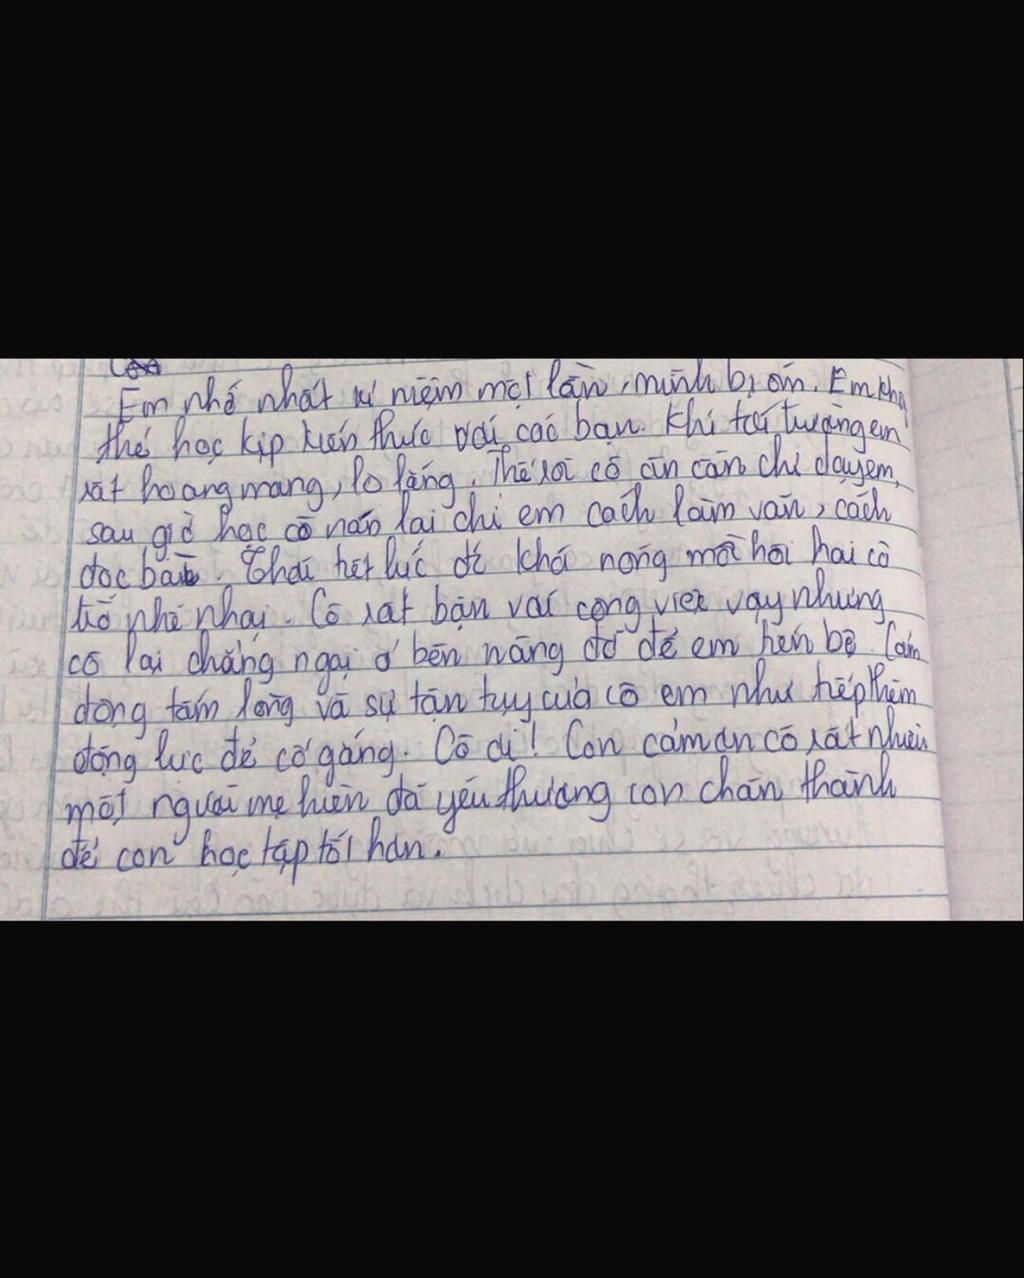 Em nhớ nhất kỉ niệm một lần, mình bị ốm. Em khô
thể học kịp kiến thức với các bạn. Khi trái tượng em
rất hoang mang, lo lắng. Thế rồi cô ân cần chỉ dạy em,
sau giờ học cô nán lại chỉ em cách làm văn, cách
đọc bài. Thời tiết lúc đó khá nóng mồ hôi hai cô
trò nhễ nhại. Cô rất bận với công việc vậy nhưng
cô lại chẳng ngại ở bên nâng đỡ để em tiến bộ. Cảm
động tấm lòng và sự tận tụy của cô em như tiếp thêm
động lực để cố gắng. Cô ơi! Con cảm ơn cô rất nhiều
một người mẹ hiền đã yêu thương con chân thành
để con học tập tốt hơn.